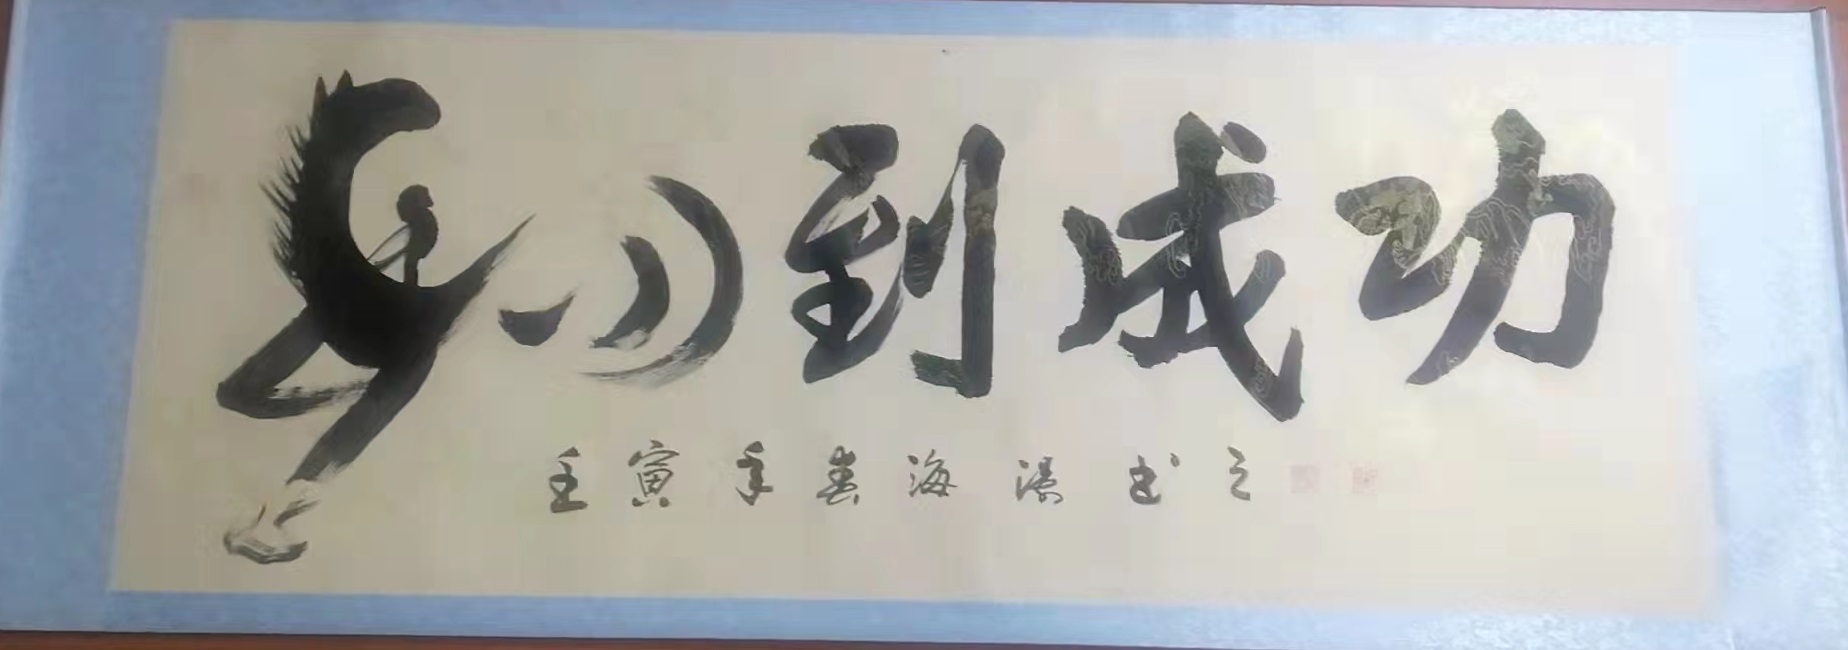 马到成功
壬寅年春海瀑书之